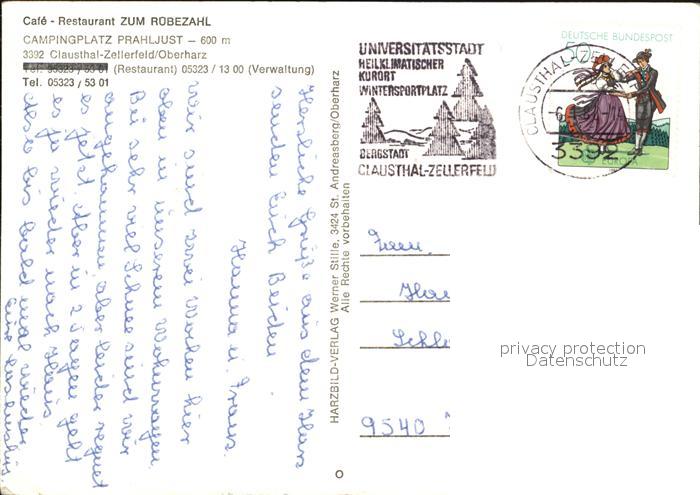 Café - Restaurant ZUM RÜBEZAHL
CAMPINGPLATZ PRAHLJUST — 600 m
3392 Clausthal-Zellerfeld/Oberharz
Tel. 05323 / 53 01 (Restaurant) 05323 / 13 00 (Verwaltung)
Tel. 05323 / 53 01
Herzliche Grüße aus dem Harz
senden Euch Beiden
Hanna u. Franz.
Wir sind zwei Wochen hier
oben in unserem Wohnwagen.
Bei sehr viel Schnee sind wir
angekommen, aber leider regnet
es jetzt. Aber in 2 Tagen geht
es ja wieder nach Haus.
also bis bald mal wieder
HARZBILD-VERLAG Werner Stille, 3424 St. Andreasberg/Oberharz
Alle Rechte vorbehalten
UNIVERSITÄTSSTADT
HEILKLIMATISCHER
KURORT
WINTERSPORTPLATZ
BERGSTADT
CLAUSTHAL-ZELLERFELD
CLAUSTHAL-ZELLERF
3392
DEUTSCHE BUNDESPOST
50
EUROPA
Fam.
9540
privacy protection
Datenschutz